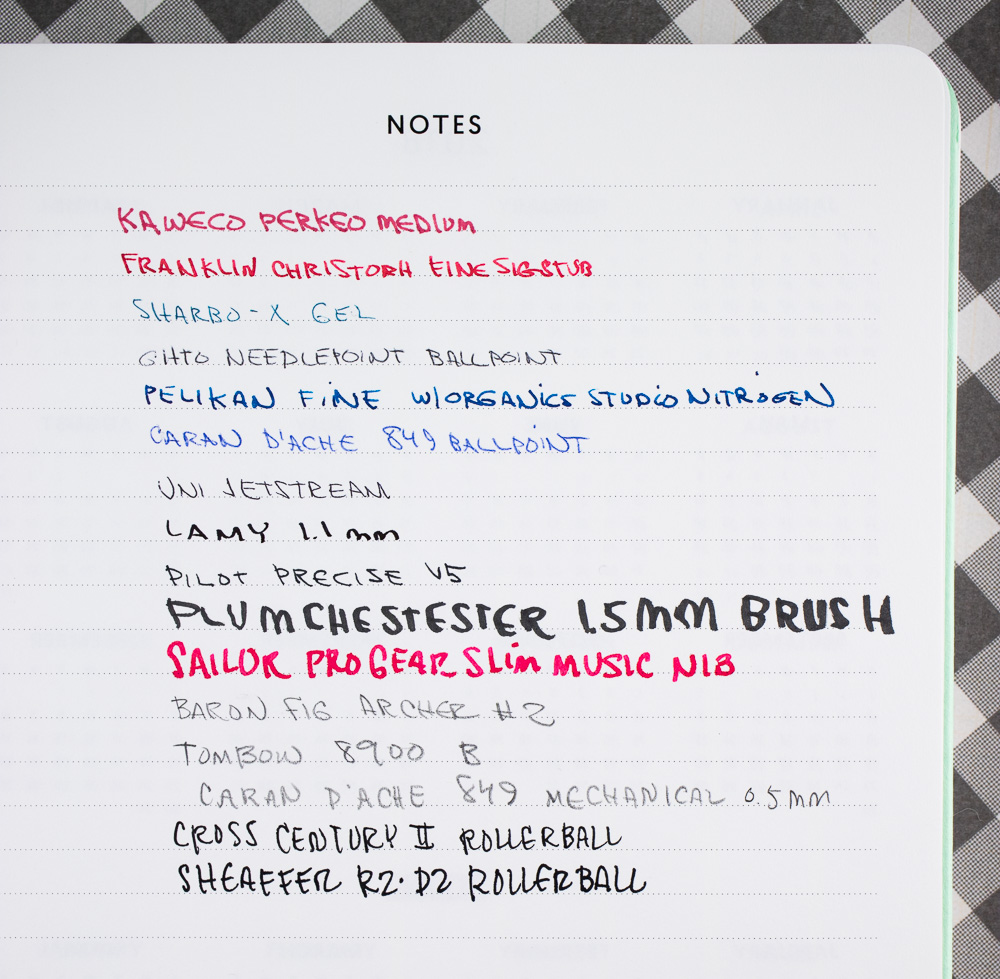 NOTES
KAWECO PERKEO MEDIUM
FRANKLIN CHRISTOPH FINE SIG STUB
SHARBO-X GEL
OHTO NEEDLEPOINT BALLPOINT
PELIKAN FINE W/ORGANICS STUDIO NITROGEN
CARAN D'ACHE 849 BALLPOINT
UNI JETSTREAM
LAMY 1.1 mm
PILOT PRECISE V5
PLUMCHESTESTER 1.5MM BRUSH
SAILOR PRO GEAR SLIM MUSIC NIB
BARON FIG ARCHER #2
TOMBOW 8900 B
CARAN D'ACHE 849 MECHANICAL 0.5mm
CROSS CENTURY II ROLLERBALL
SHEAFFER R2-D2 ROLLERBALL